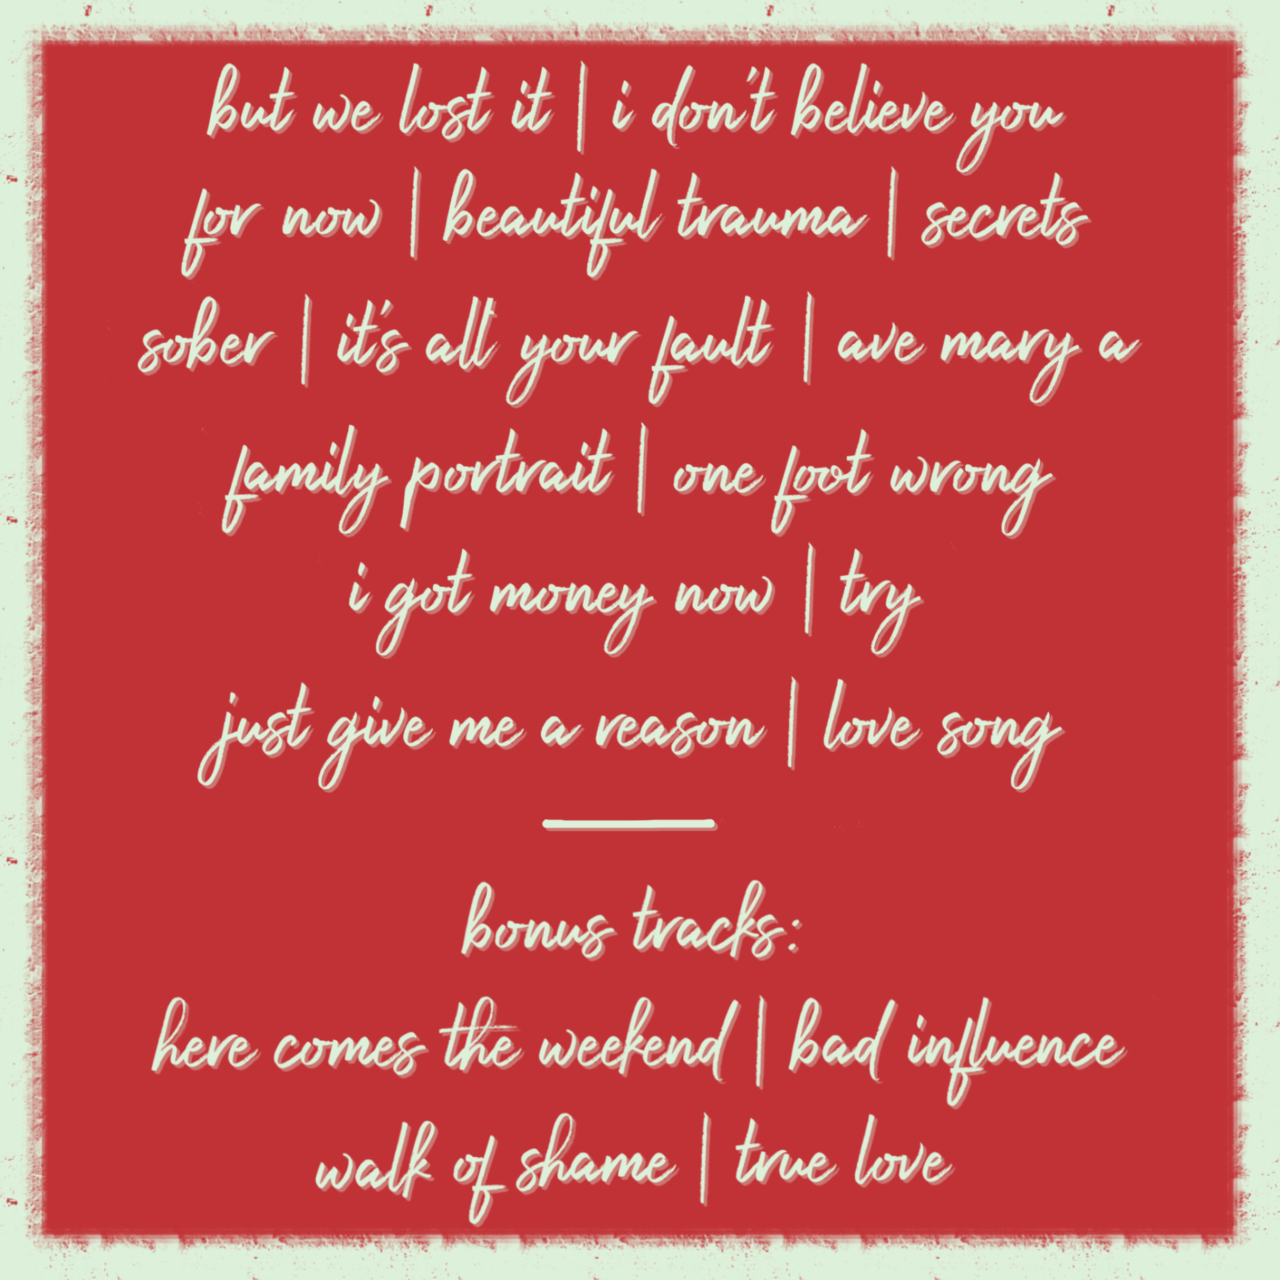 but we lost it | i don't believe you
for now | beautiful trauma | secrets
sober | it's all your fault | ave mary a
family portrait | one foot wrong
i got money now | try
just give me a reason | love song
bonus tracks:
here comes the weekend | bad influence
walk of shame | true love